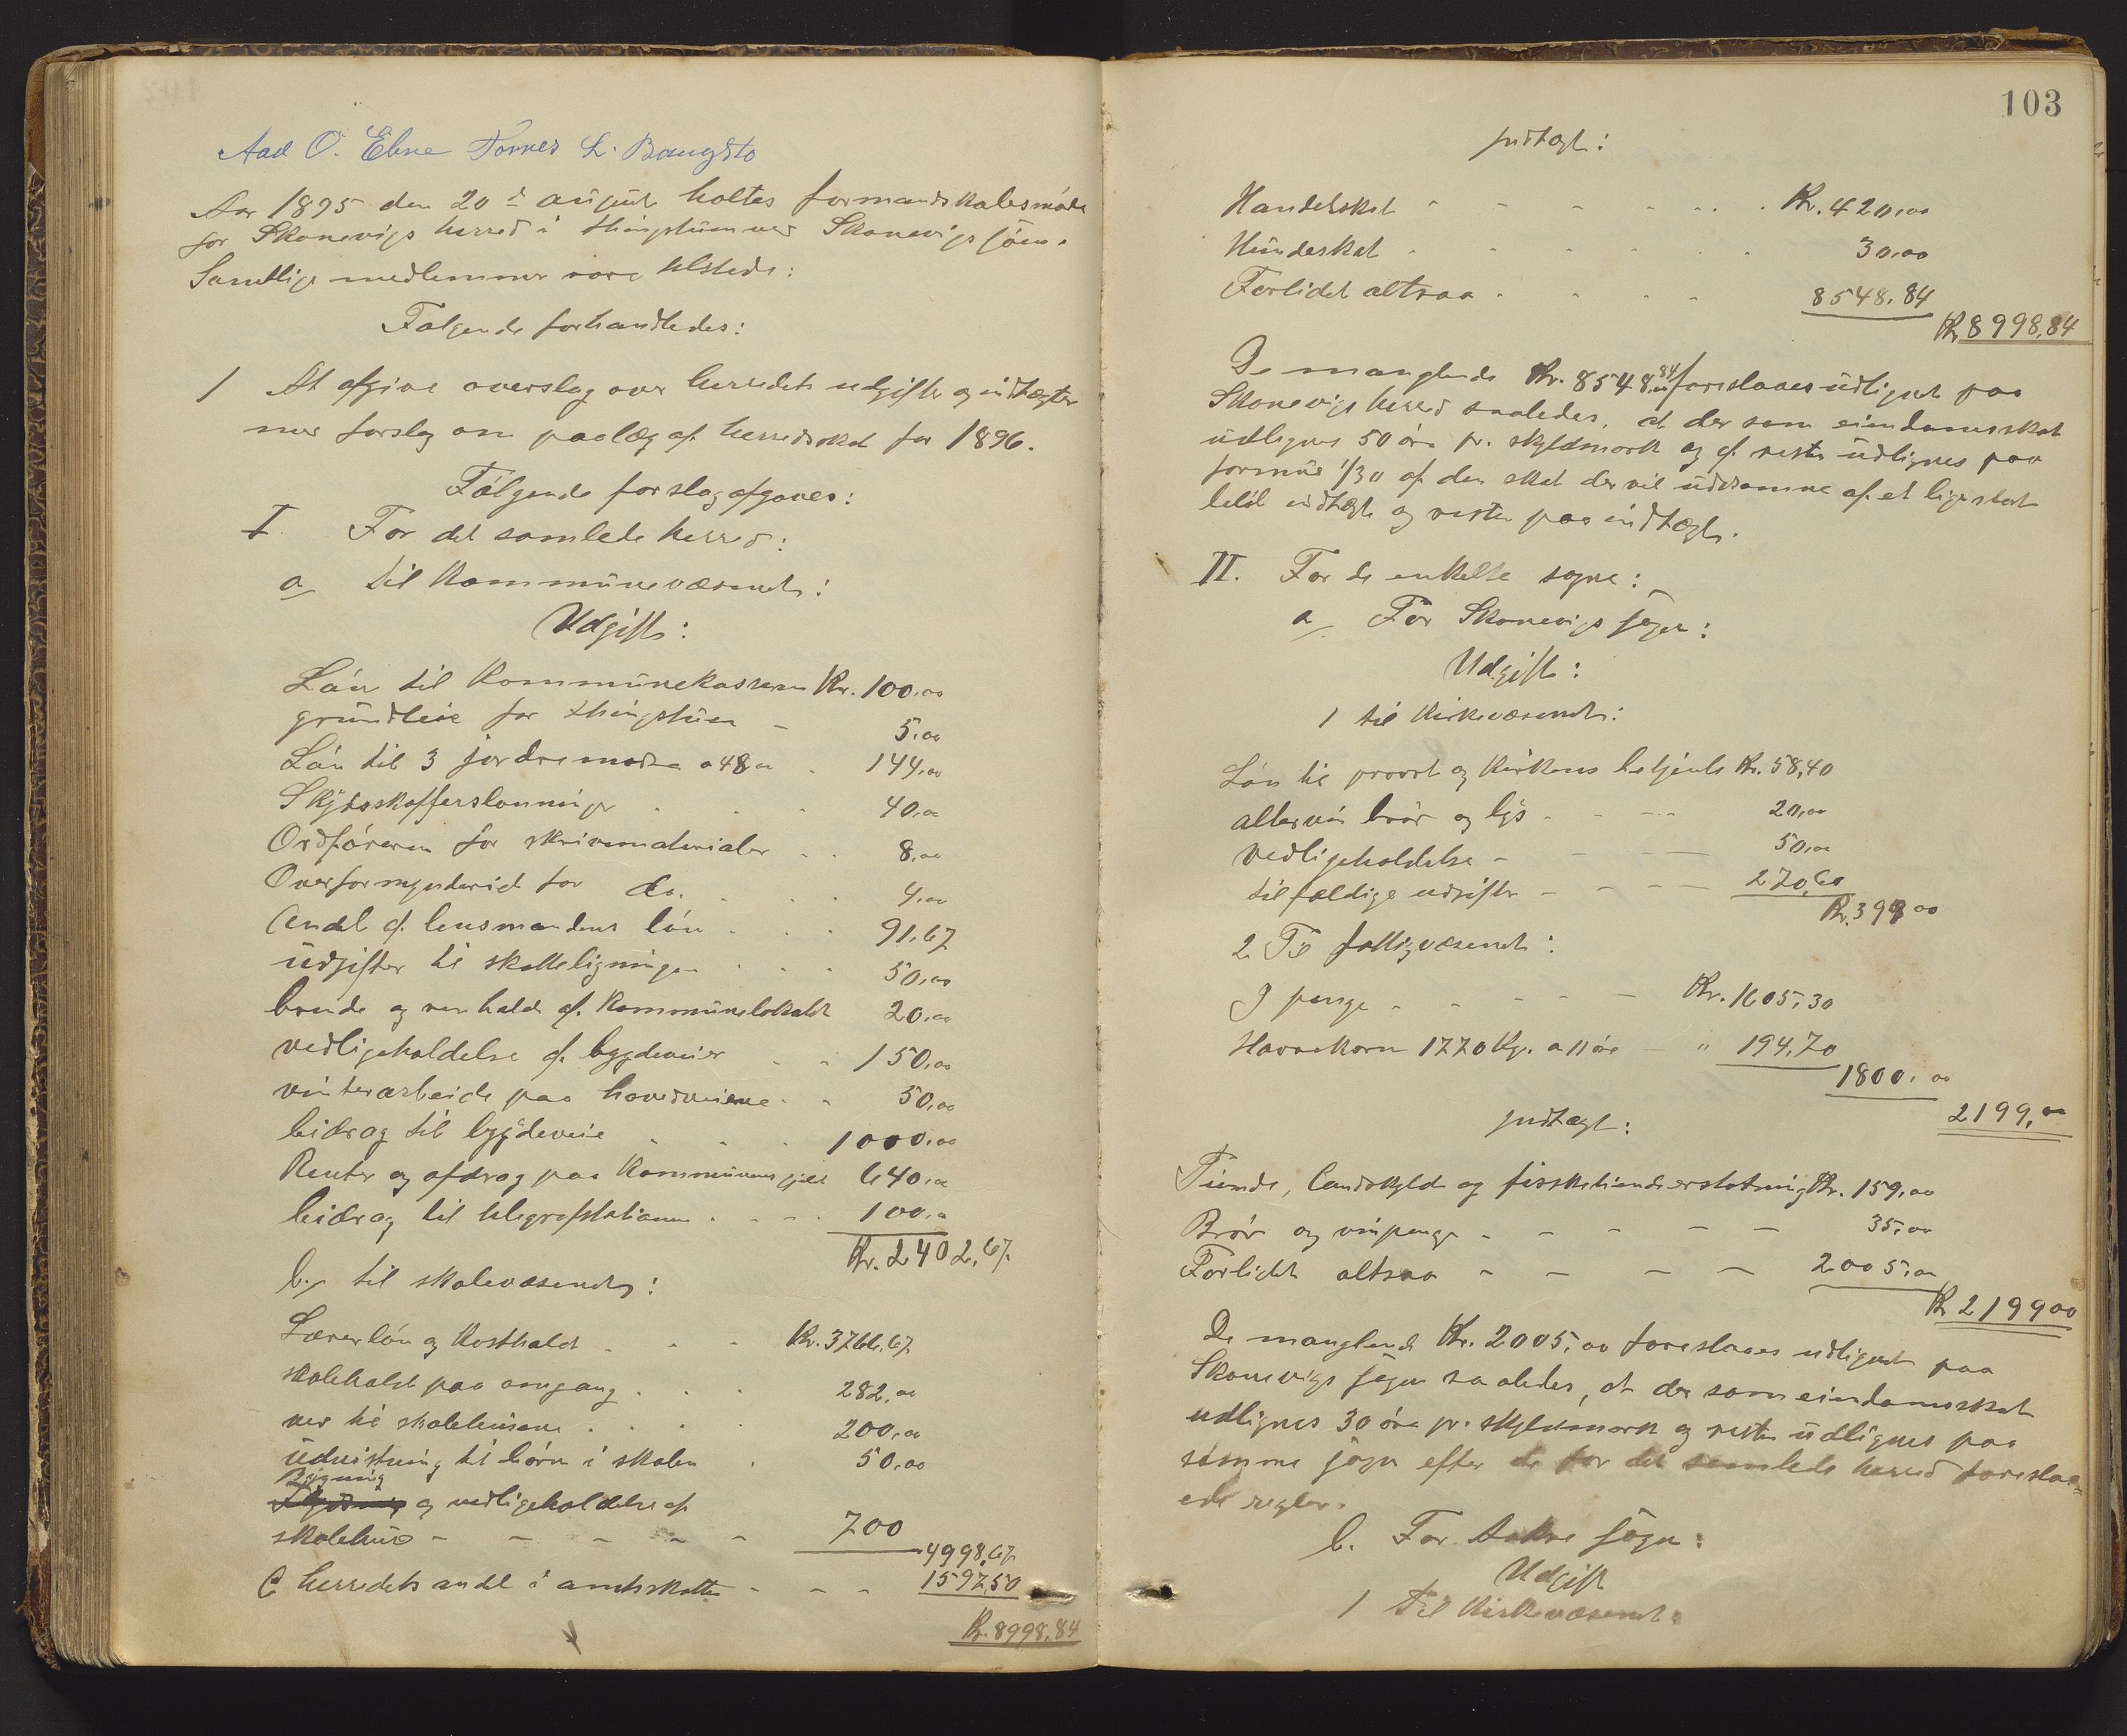 Aad O. Ebne Tornes L. Baugsto
Aar 1895 den 20de august holtes formandskabsmøde
for Skonevigs herred i thingstuen ved Skonevigsjøen.
Samtlige medlemmer vare tilstede:
Følgende forhandledes:
1 At afgive overslag over herredets udgifter og indtægter
med forslag om paalæg af herredsskat for 1896.
Følgende forslag afgaves:
I. For det samlede herred:
a, til Kommunevæsenet:
Udgift:
Løn til Kommunekasseren Kr. 100,00
grundleie for thingstuen - 5,00
Løn til 3 jordemødre a 48 . 144,00
Skydsskafferslønninger . . 40,00
Ordføreren for skrivematerialer . . 8,00
Overformynderiet for do. . . . 4,00
Andel af lensmandens løn . . . 91,67
udgifter til skatteligningen . . . 50,00
brende og renhold af Kommunelokalet 20,00
vedligeholdelse af bygdeveier . . 150,00
vinterarbeide paa hovedveiene . . 50,00
bidrag til bygdeveie . . . 1000,00
Renter og afdrag paa Kommunens gjæld 640,00
bidrag til telegrafstationen . . . 100,00
Kr. 2402,67
b, til skolevæsenet:
Lærerløn og Kosthold . . . Kr. 3766,67
skolehold paa omgang . . . 282,00
ved til skolehusene . . . . 200,00
undervisning til børn i skolen . 50,00
Bygning
og vedligeholdelse af
skolehus - - - - - 700
4998,67
C herredets andel i amtsskatten - - - 1597,50
Kr. 8998,84
103
Indtægt:
Handelskat - - - - - . . . Kr. 420,00
Hundeskat . . . . . . . 30,00
Forlidet altsaa . . . . 8548,84
Kr 8998,84
De manglende Kr. 8548,84 foreslaaes udlignet paa
Skonevigs herred saaledes, at der som eiendomsskat
udlignes 50 øre pr. skyldmark og af resten udlignes paa
formue 1/30 af den skat der vil udkomme af et ligestort
beløb indtægt og resten paa indtægt.
II. For de enkelte sogne:
a, For Skonevigs sogn:
Udgift:
1 til Kirkevæsenet:
Løn til provst og Kirkens betjente Kr. 58,40
altervin brød og lys - - - - 20,00
vedligeholdelse - - - - 50,00
tilfældige udgifter - - - - 270,60
Kr. 399 00
2 Til fattigvæsenet:
I penge - - - - - Kr. 1605,30
Havrekorn 1770 Kg. a 11 øre - " 194,70
1800,00
2199,00
Indtægt:
Tiende, landskyld og fisketiendeerstatning Kr. 159,00
Brød og vinpenge - - - - - 35,00
Forlidet altsaa - - - - 2005,00
Kr 2199 00
De manglende Kr. 2005,00 foreslaaes udlignet paa
Skonevigs sogn saaledes, at der som eiendomsskat
udlignes 30 øre pr. skyldmark og resten udlignes paa
samme sogn efter de for det samlede herred foreslaa=
ede regler.
b. For Aakre sogn:
Udgift
1 til Kirkevæsenet: